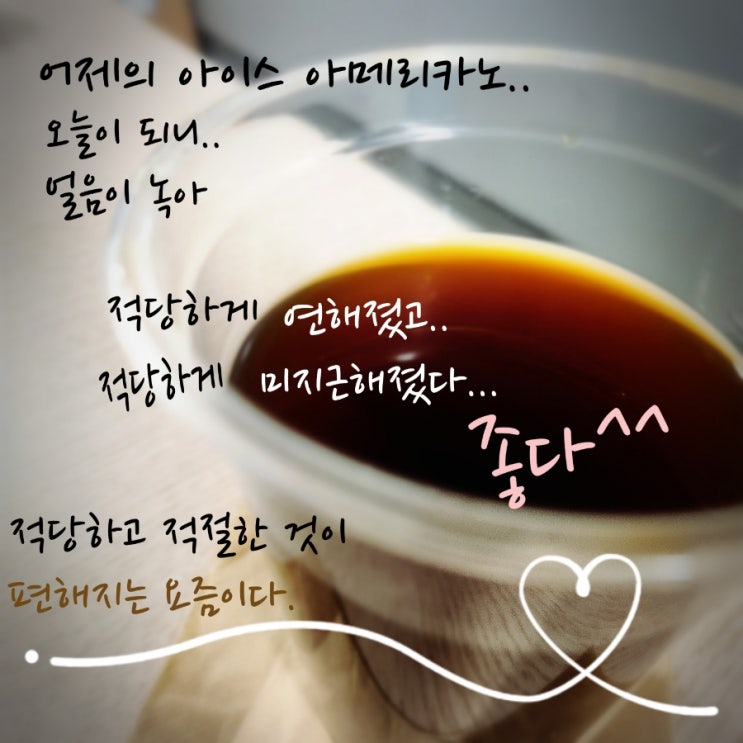 어제의 아이스 아메리카노..
오늘이 되니..
얼음이 녹아
적당하게 연해졌고..
적당하게 미지근해졌다...
좋다^^
적당하고 적절한 것이
편해지는 요즘이다.